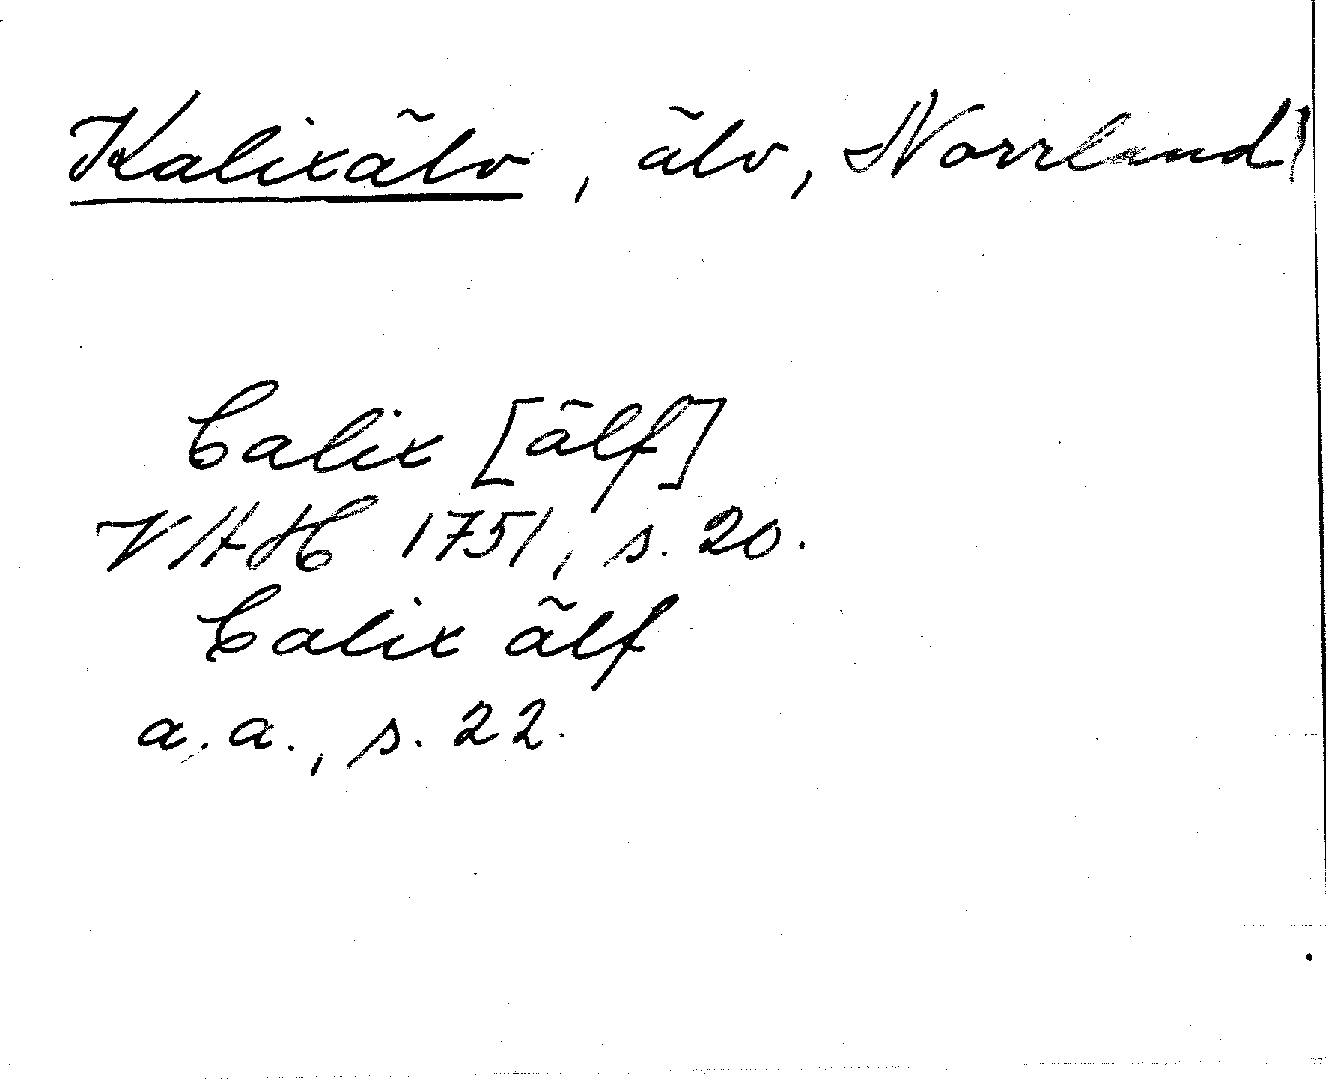 Kalixälv, älv, Norrland
Calix [älf]
VAH 1751, s. 20.
Calix älf
a.a., s. 22.